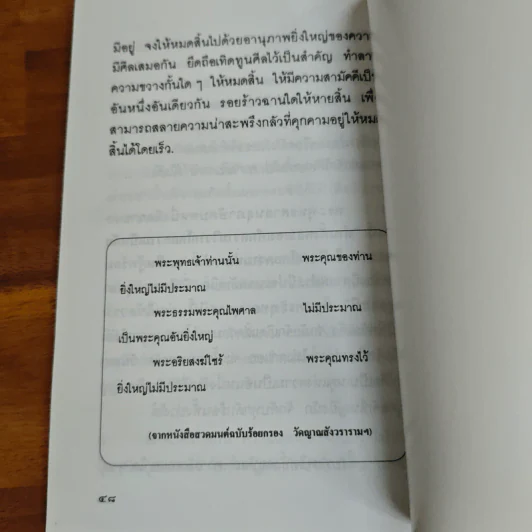 มีอยู่ จงให้หมดสิ้นไปด้วยอานุภาพยิ่งใหญ่ของความ
มีศีลเสมอกัน ยึดถือเทิดทูนศีลไว้เป็นสำคัญ ทำลาย
ความขวางกั้นใด ๆ ให้หมดสิ้น ให้มีความสามัคคีเป็น
อันหนึ่งอันเดียวกัน รอยร้าวฉานใดให้หายสิ้น เพื่อ
สามารถสลายความน่าสะพรึงกลัวที่คุกคามอยู่ให้หมด
สิ้นได้โดยเร็ว.
พระพุทธเจ้าท่านนั้น พระคุณของท่าน
ยิ่งใหญ่ไม่มีประมาณ
พระธรรมพระคุณไพศาล ไม่มีประมาณ
เป็นพระคุณอันยิ่งใหญ่
พระอริยสงฆ์ไซร้ พระคุณทรงไว้
ยิ่งใหญ่ไม่มีประมาณ
(จากหนังสือสวดมนต์ฉบับร้อยกรอง วัดญาณสังวรารามฯ)
๔๘